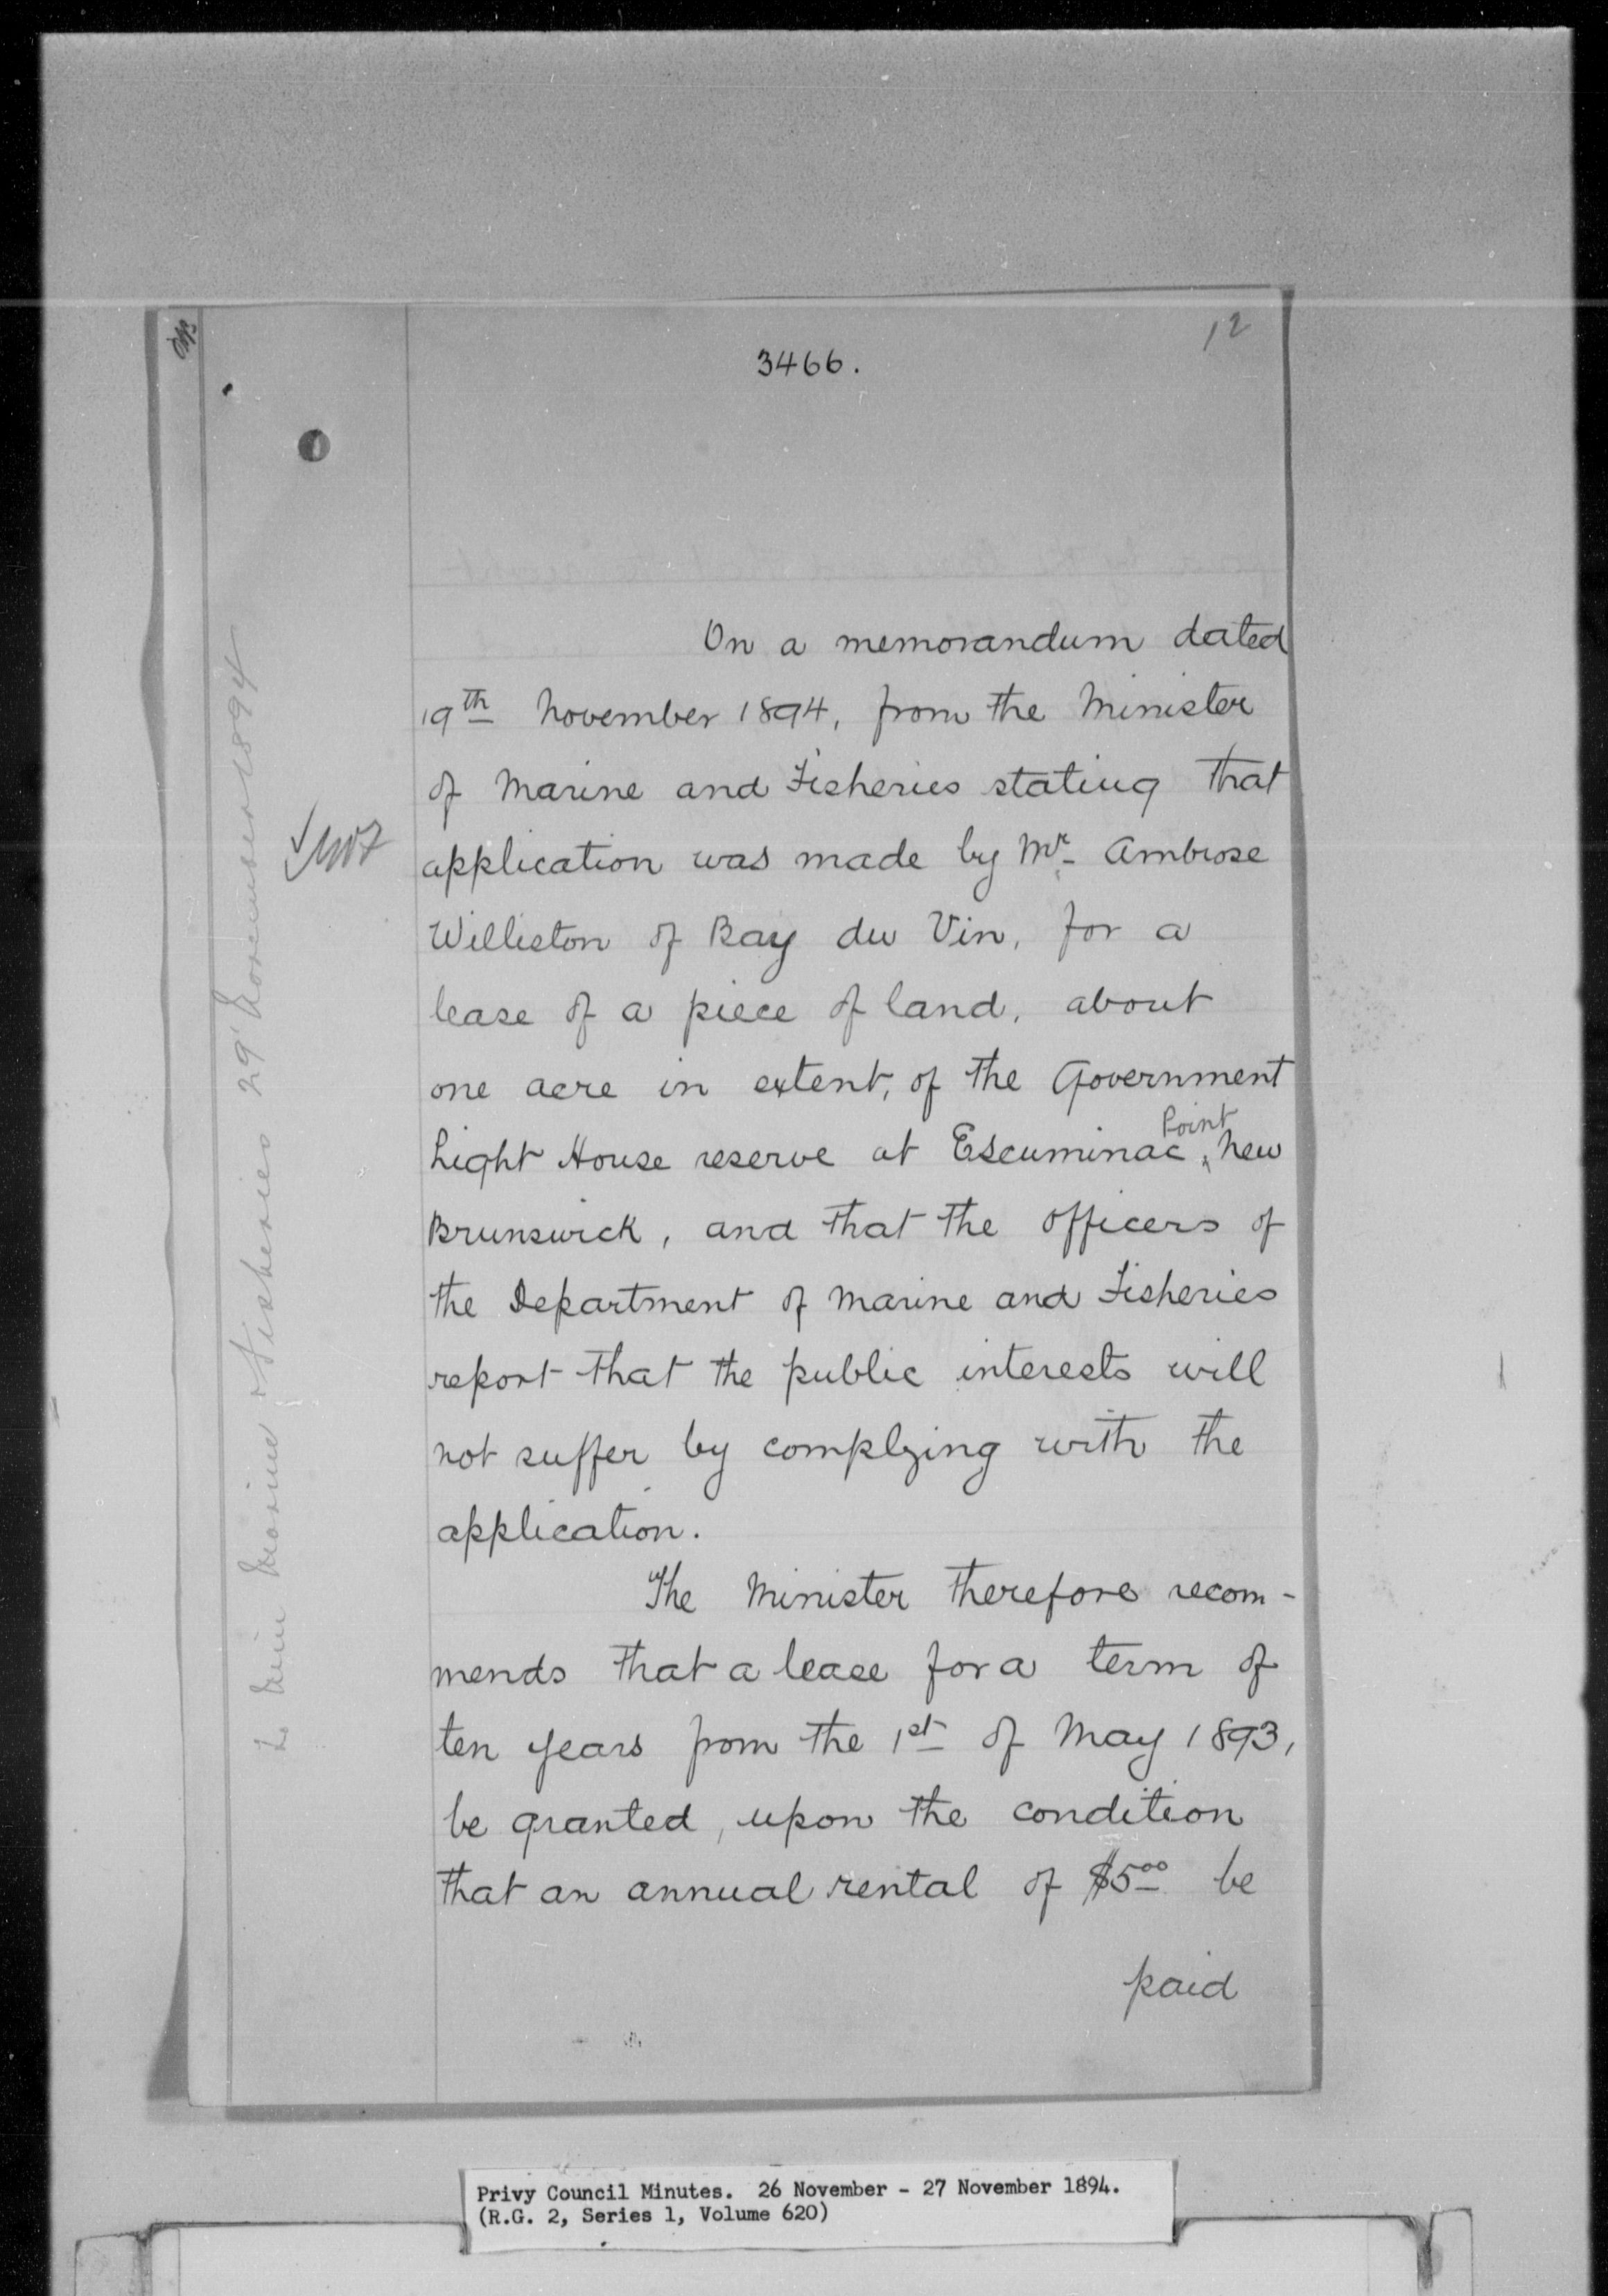 12
3466.
On a memorandum dated
19th November 1894, from the Minister
of Marine and Fisheries stating that
application was made by Mr Ambrose
Williston of Bay du Vin, for a
lease of a piece of land, about
one acre in extent, of the Government
Light House reserve at Escuminac Point, New
Brunswick, and that the officers of
the Department of Marine and Fisheries
report that the public interests will
not suffer by complying with the
application.
The Minister therefore recom-
mends that a lease for a term of
ten years from the 1st of May 1893,
be granted, upon the condition
that an annual rental of $5.00 be
paid
Min Marine & Fisheries 29' November 1894
Privy Council Minutes. 26 November - 27 November 1894.
(R.G. 2, Series 1, Volume 620)